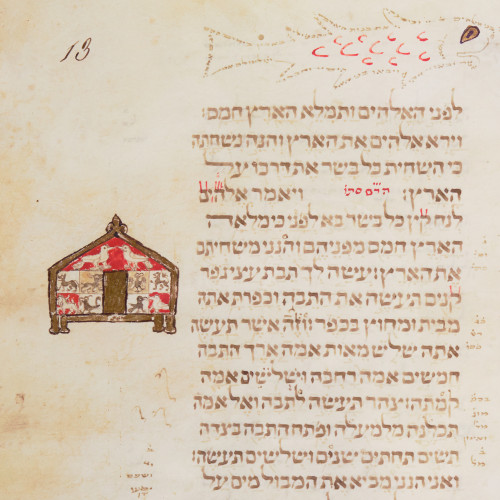 13
לפני האלהים ותמלא הארץ חמס:
וירא אלהים את הארץ והנה נשחתה
כי השחית כל בשר את דרכו על
הארץ: ויאמר אלהים
לנח קץ כל בשר בא לפני כי מלאה
הארץ חמס מפניהם והנני משחיתם
את הארץ: עשה לך תבת עצי גפר
קנים תעשה את התבה וכפרת אתה
מבית ומחוץ בכפר: וזה אשר תעשה
אתה שלש מאות אמה ארך התבה
חמשים אמה רחבה ושלשים אמה
קמתה: צהר תעשה לתבה ואל אמה
תכלנה מלמעלה ופתח התבה בצדה
תשים תחתים שנים ושלישים תעשה:
ואני הנני מביא את המבול מים על